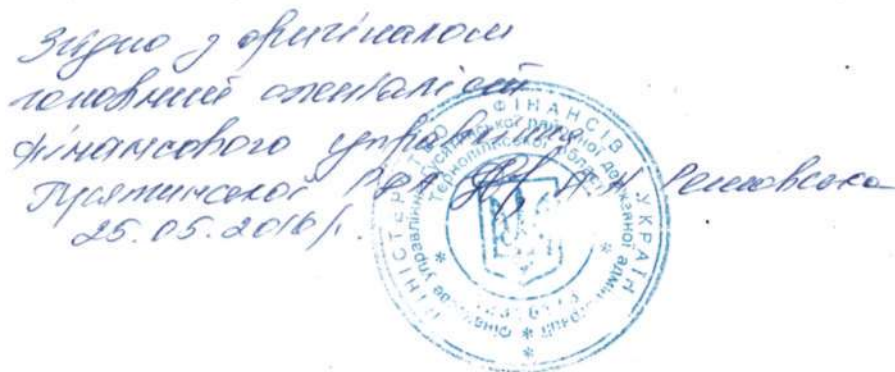 Згідно з оригіналом
головний спеціаліст
фінансового управління
Гусятинської РДА
25.05.2016 р.
МІНІСТЕРСТВО ФІНАНСІВ УКРАЇНИ
Фінансове управління Гусятинської районної державної адміністрації
Тернопільської області